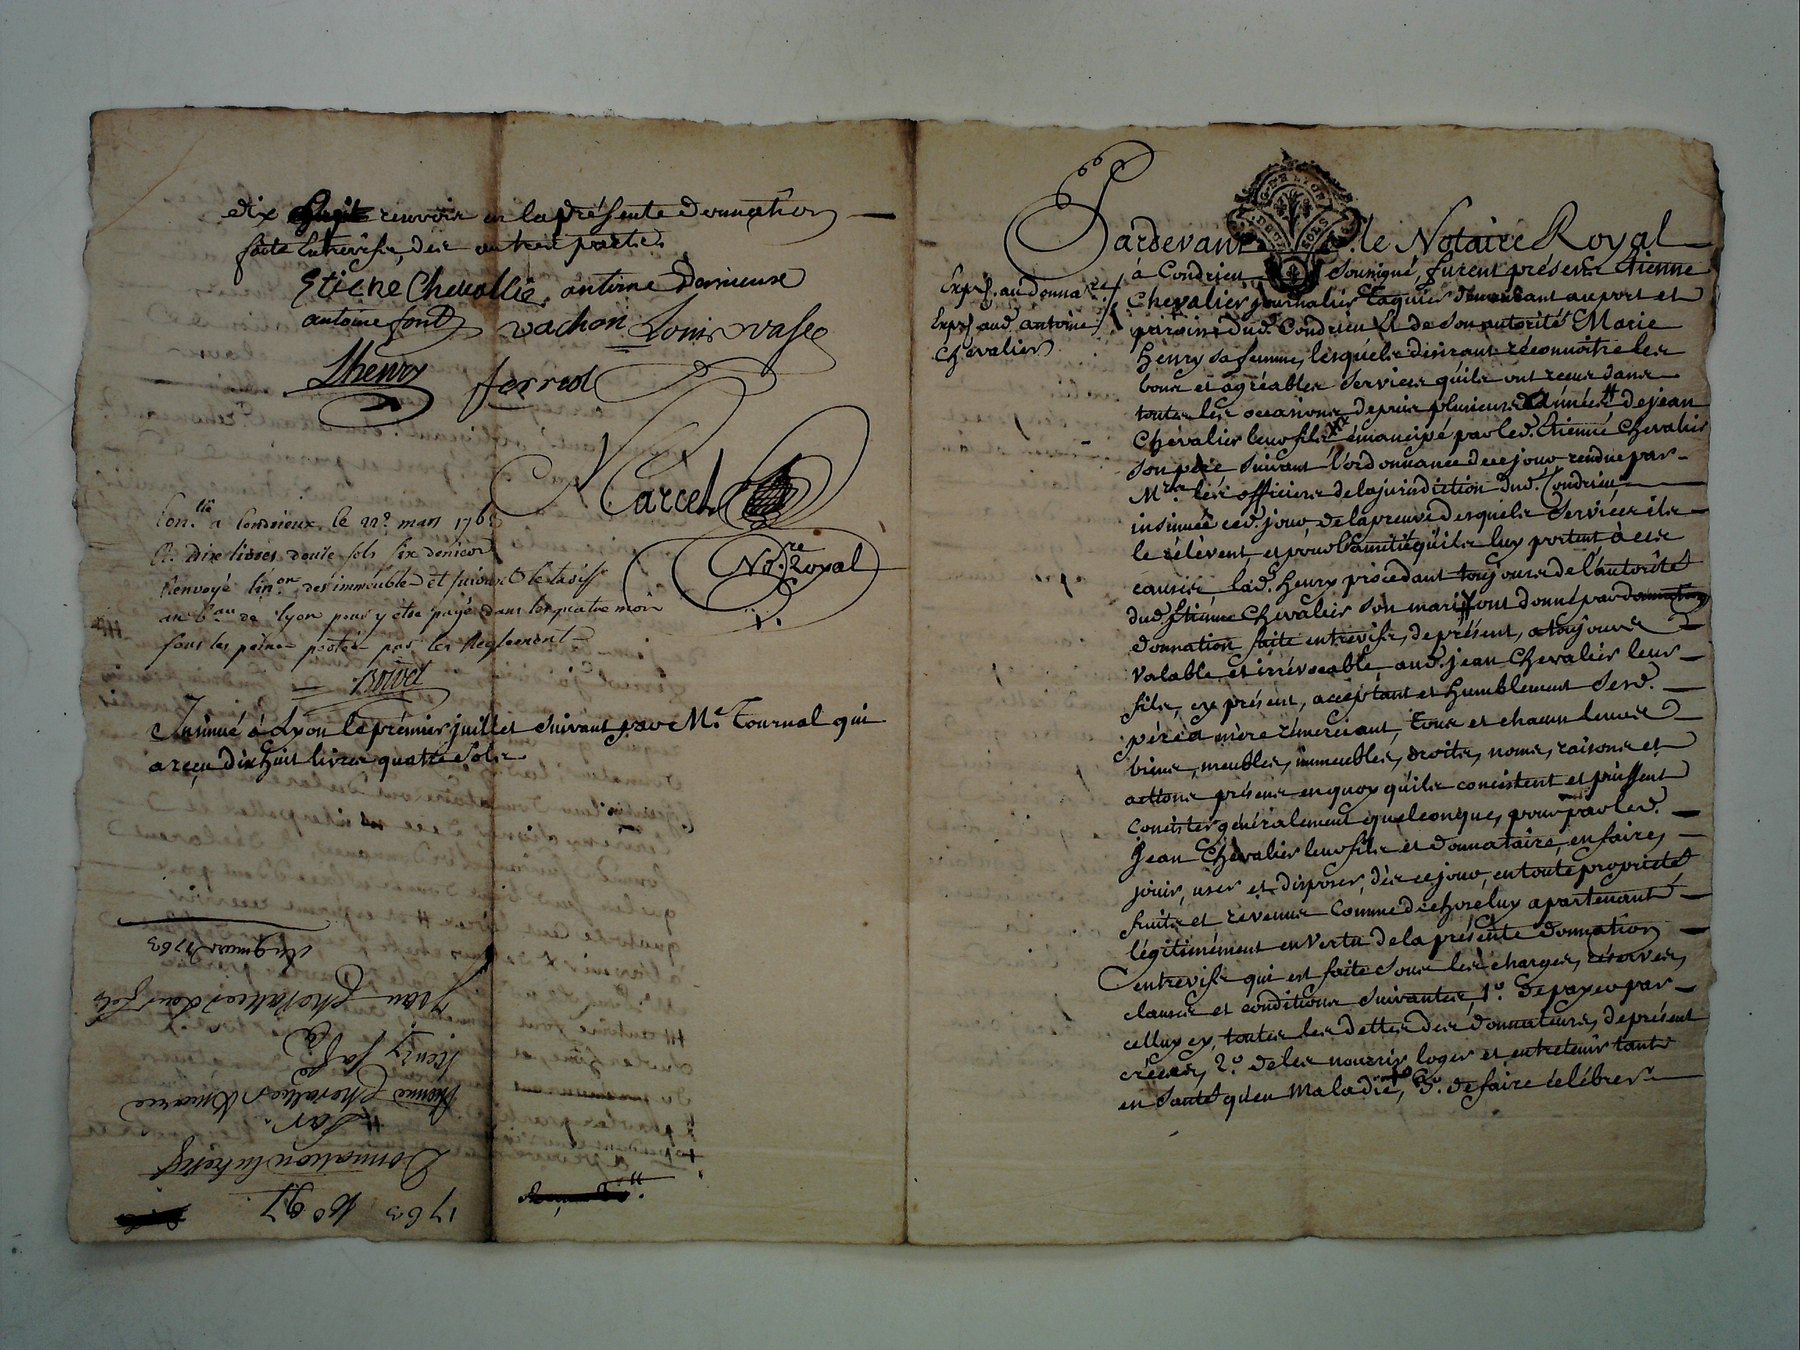 dix renvoir en la présente donnation
faite Entrevifs, der autres parties.
Etiene Chevallié antoine Darnieux
antoine font vachon Louis vase
Shenry ferreol
Marcel
No.re Royal
Con.lle a Condrieux le 22.e mars 1763
R. dix livres douze sols six deniers
Renvoyé l'in.on des immeubles et suivant le tariff
au b.au de Lyon pour y être payé dans les quatre mois
sous les peines portées par les Reglements
Boivet
Insinué à Lyon le prémier juillet suivant par M.e Tournal qui
a reçu dix huit livres quatre sols
1763 N.o 97
Donnation Entrevifs
Par
Etienne Chevalier & marie
Henry sa fe
a
Jean Chevalier Leur fils
du 9 mars 1763
Pardevant le Notaire Royal
à Condrieu soussigné, furent présens Etienne
Chevalier journalier demeurant au port et
paroisse dud. Condrieu & de son autorité Marie
Henry sa femme, lesquels désirant réconnoître les
bons et agréables services qu'ils ont reçus dans
toutes les occasions depuis plusieurs années de jean
Chevalier leur fils émancipé par led. Etienne Chevalier
son père suivant l'ordonnance de ce jour rendue par
M.rs les officiers de la jurisdiction dud. Condrieu
insinuée ced. jour, de la preuve desquels services ils
le rélèvent, et pour l'amitié qu'ils luy portent à ces
causes lad. Henry procédant toujours de l'autorité
dud. Etienne Chevalier son mari ont donné par donnation
donnation faite entrevifs, de présent, a toujours
valable et irrévocable aud. jean Chevalier leur
fils, cy présent, acceptant et humblement sesd.
père & mère rémerciant, tous et chacun leurs
biens, meubles, immeubles, droits, noms, raisons et
actions présens en quoy qu'ils concistent et puissent
concister généralement quelconques, pour par led.
Jean Chevalier leur fils et donnataire, en faire,
jouir, user et disposer, dès ce jour, en toute proprieté
fruits et révenus comme de chose luy apartenant
légitimément en vertu de la présente donnation
entrevifs qui est faite sous les charges, réserves,
clauses et conditions suivantes, 1.o de payer par
celluy cy, toutes les dettes des donnateurs, de présent
créées, 2.o de les nourrir, loger et entretenir tant
en santé qu'en maladie, 3.o de faire célébrer
Exp.é au donna.re
Exp.é aud. antoine
Chevalier